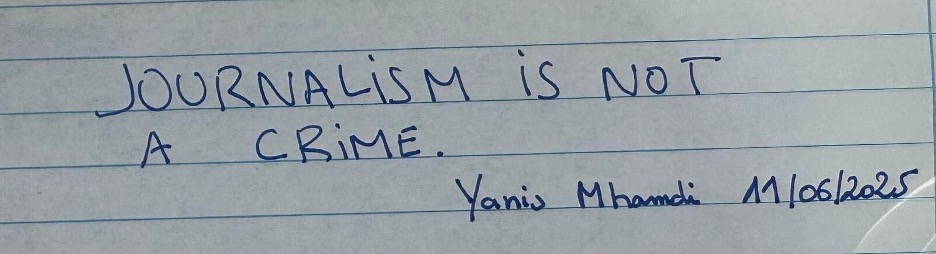 JOURNALiSM iS NOT
A CRiME.
Yanis Mhamdi 11/06/2025